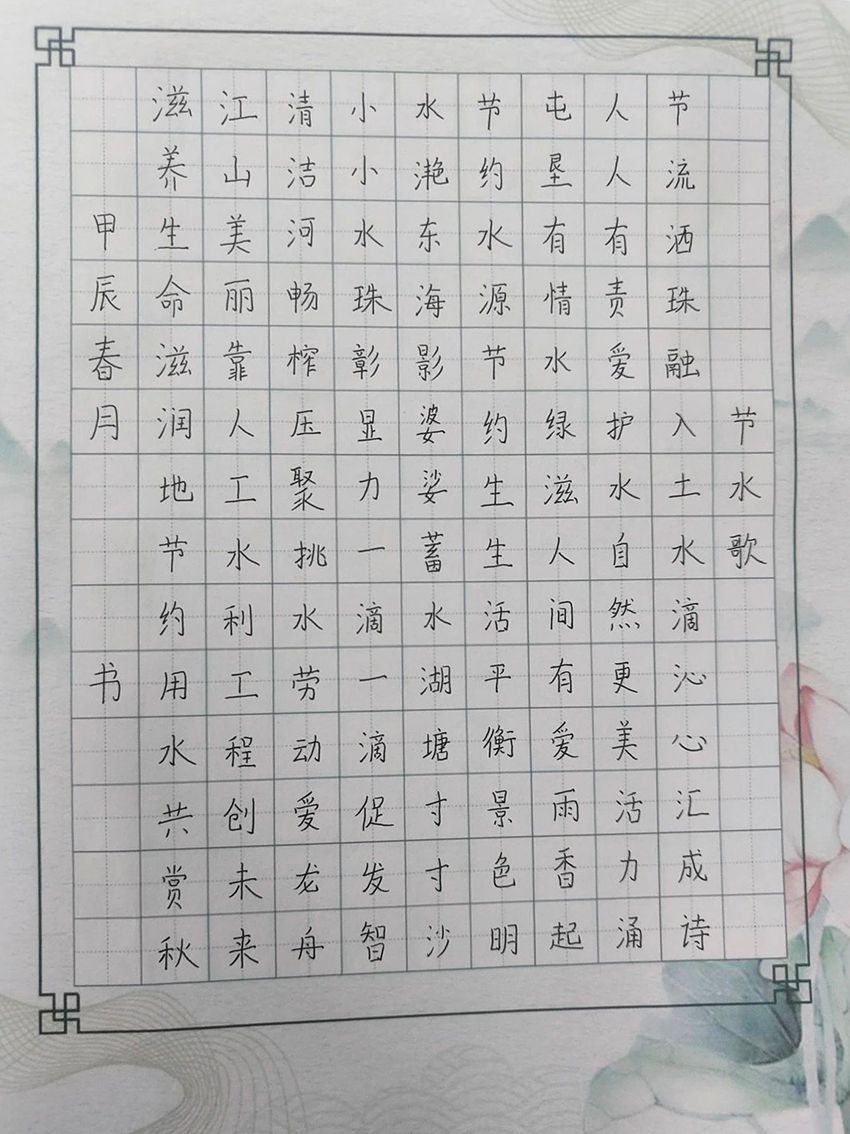 节水歌
节流洒珠融入土水滴沁心汇成诗
人人有责爱护水自然更美活力涌
屯垦有情水绿滋人间有爱雨香起
节约水源节约生生活平衡景色明
水滟东海影婆娑蓄水湖塘寸寸沙
小小水珠彰显力一滴一滴促发智
清洁河畅榨压聚挑水劳动爱龙舟
江山美丽靠人工水利工程创未来
滋养生命滋润地节约用水共赏秋
甲辰春月书